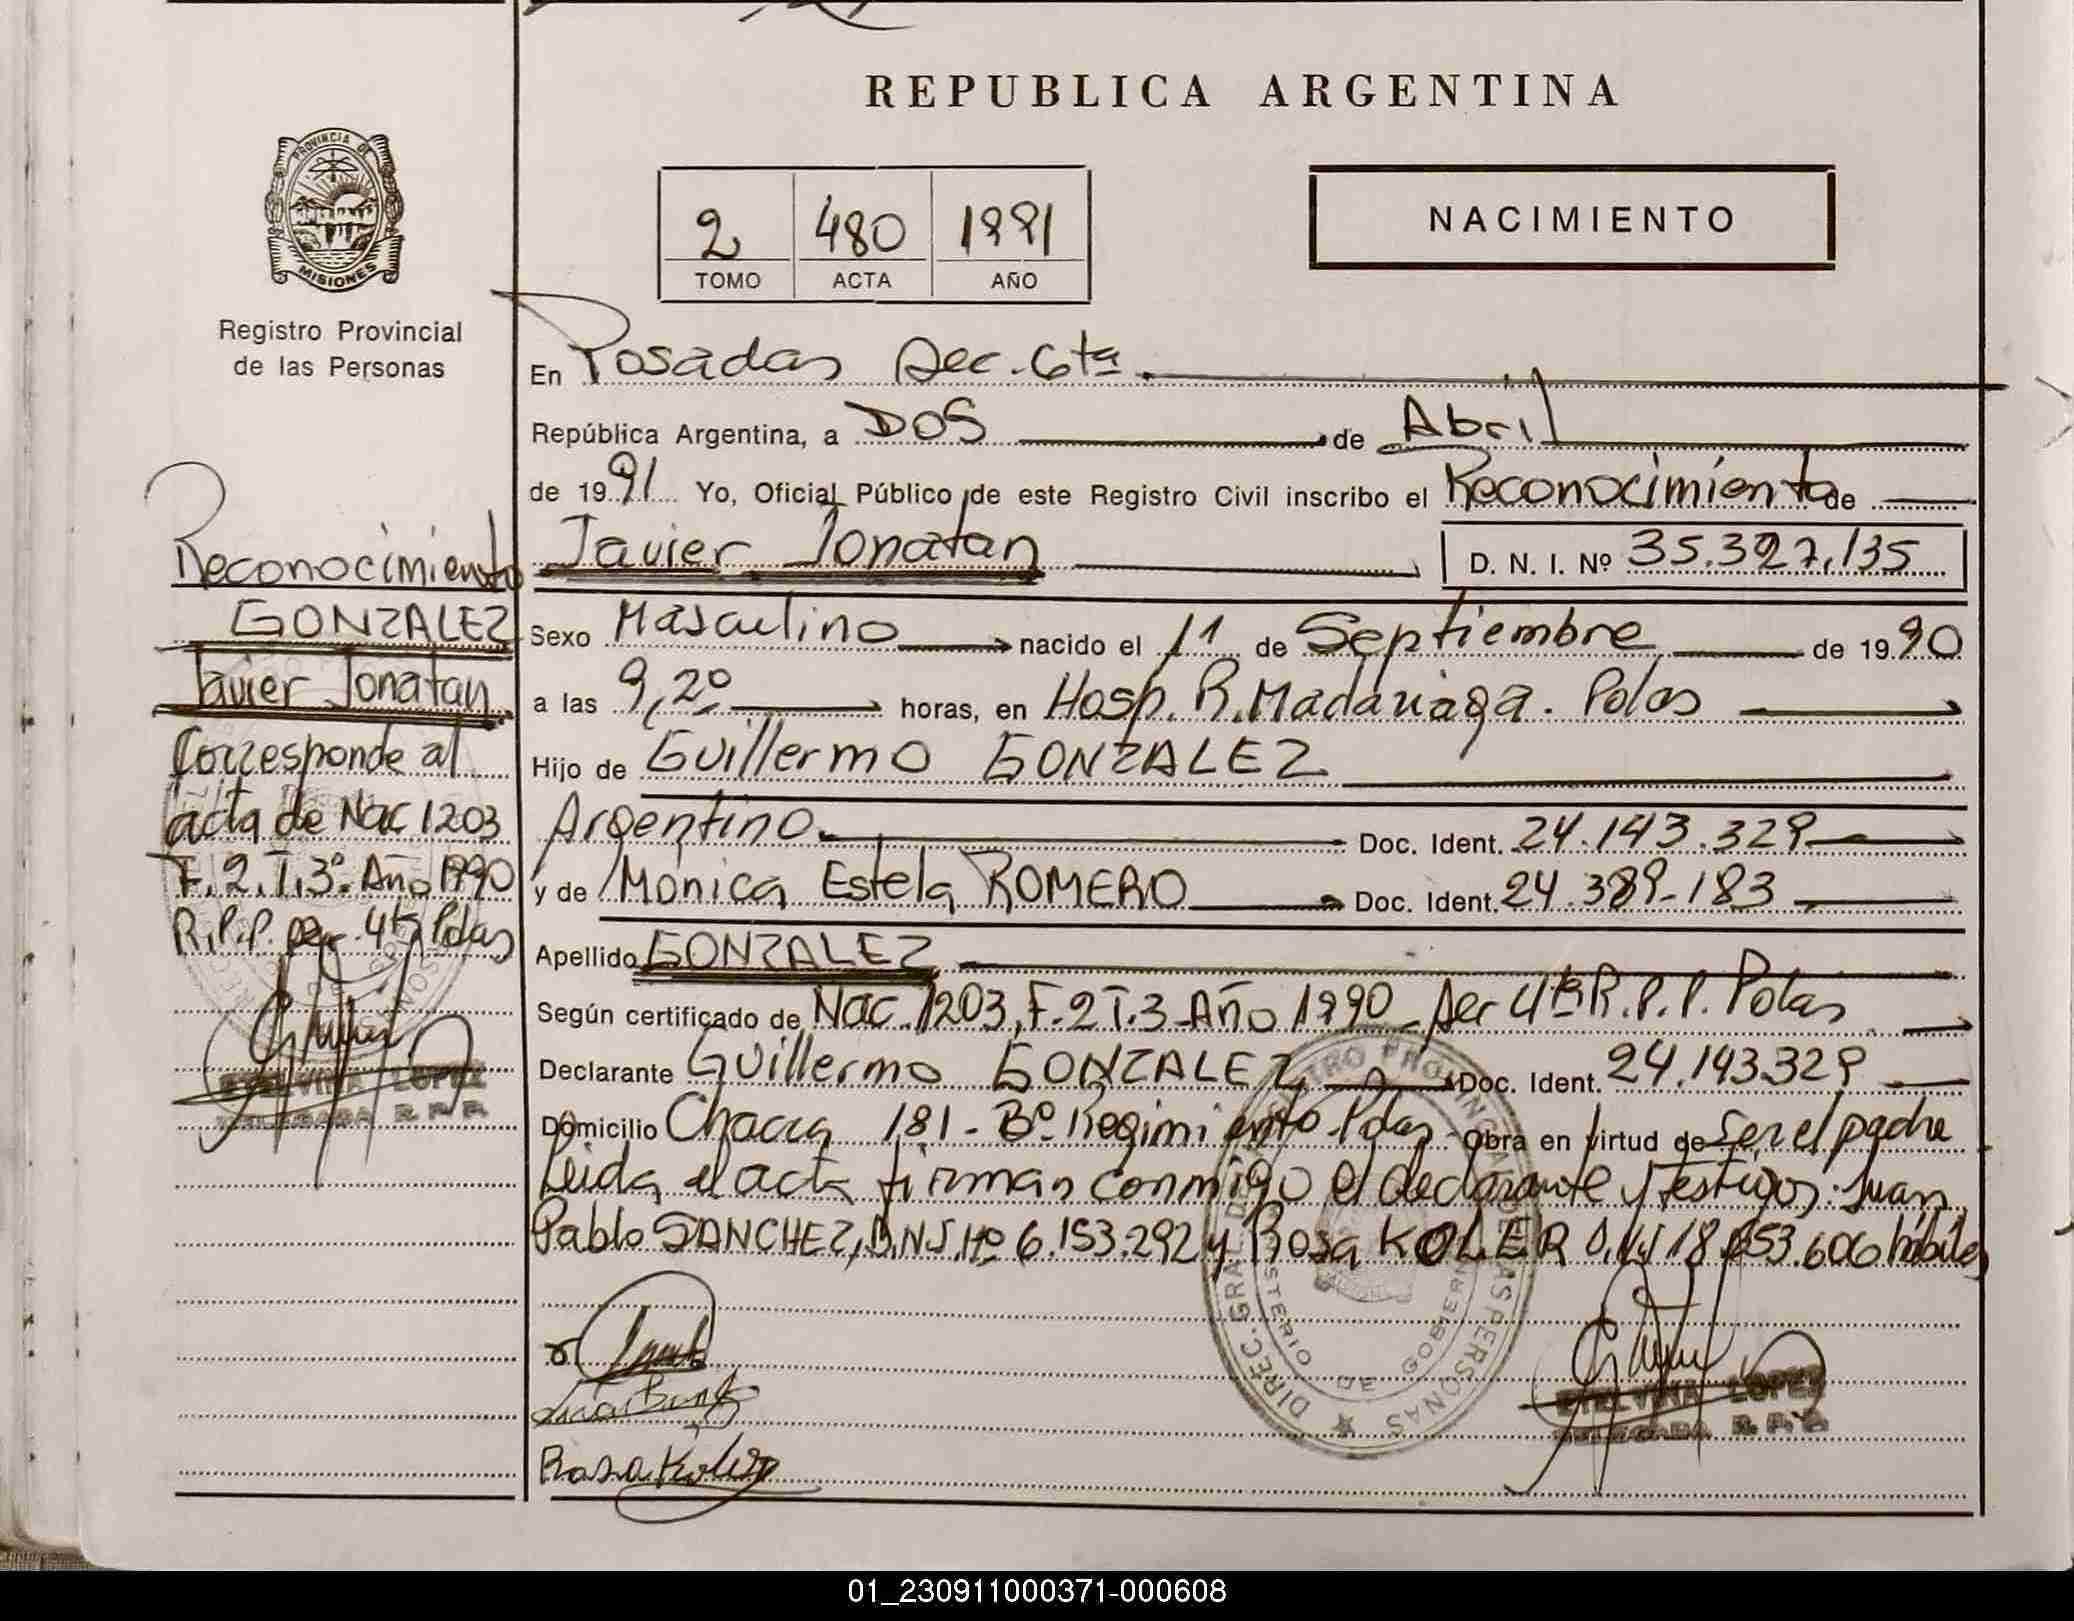 REPUBLICA ARGENTINA
PROVINCIA DE
MISIONES
Registro Provincial
de las Personas
2 480 1991
TOMO ACTA AÑO
NACIMIENTO
En Posadas Sec. 6ta.
República Argentina, a DOS de Abril
de 1991 Yo, Oficial Público de este Registro Civil inscribo el Reconocimiento de
Javier Jonatan D. N. I. Nº 35.327.135
Sexo Masculino nacido el 11 de Septiembre de 1990
a las 9,20 horas, en Hosp. R. Madariaga. Pdas
Hijo de Guillermo GONZALEZ
Argentino Doc. Ident. 24.143.329
y de Mónica Estela ROMERO Doc. Ident. 24.389.183
Apellido GONZALEZ
Según certificado de Nac. 1203, F. 2 T. 3 Año 1990 Sec 4ta R.P.P. Pdas
Declarante Guillermo GONZALEZ Doc. Ident. 24.143329
Domicilio Chacra 181 - Bº Regimiento - Pdas Obra en virtud de Ser el padre
Leida el acta firman conmigo el declarante y Testigos: Juan
Pablo SANCHEZ, D.N.I. Nº 6.153.292 y Rosa KOLER D.N.I 18. 53.606 hábiles
Reconocimiento
GONZALEZ
Javier Jonatan
Corresponde al
acta de Nac 1203
F. 2. T. 3º. Año 1990
R.P.P. Sec. 4ta Pdas
ETELVINA LOPEZ
DELEGADA R. P. P.
Rosa Koler
DIREC. GRAL. DEL REGISTRO PROVINCIAL DE LAS PERSONAS
MINISTERIO DE GOBIERNO
ETELVINA LOPEZ
DELEGADA R. P. P.
01_230911000371-000608